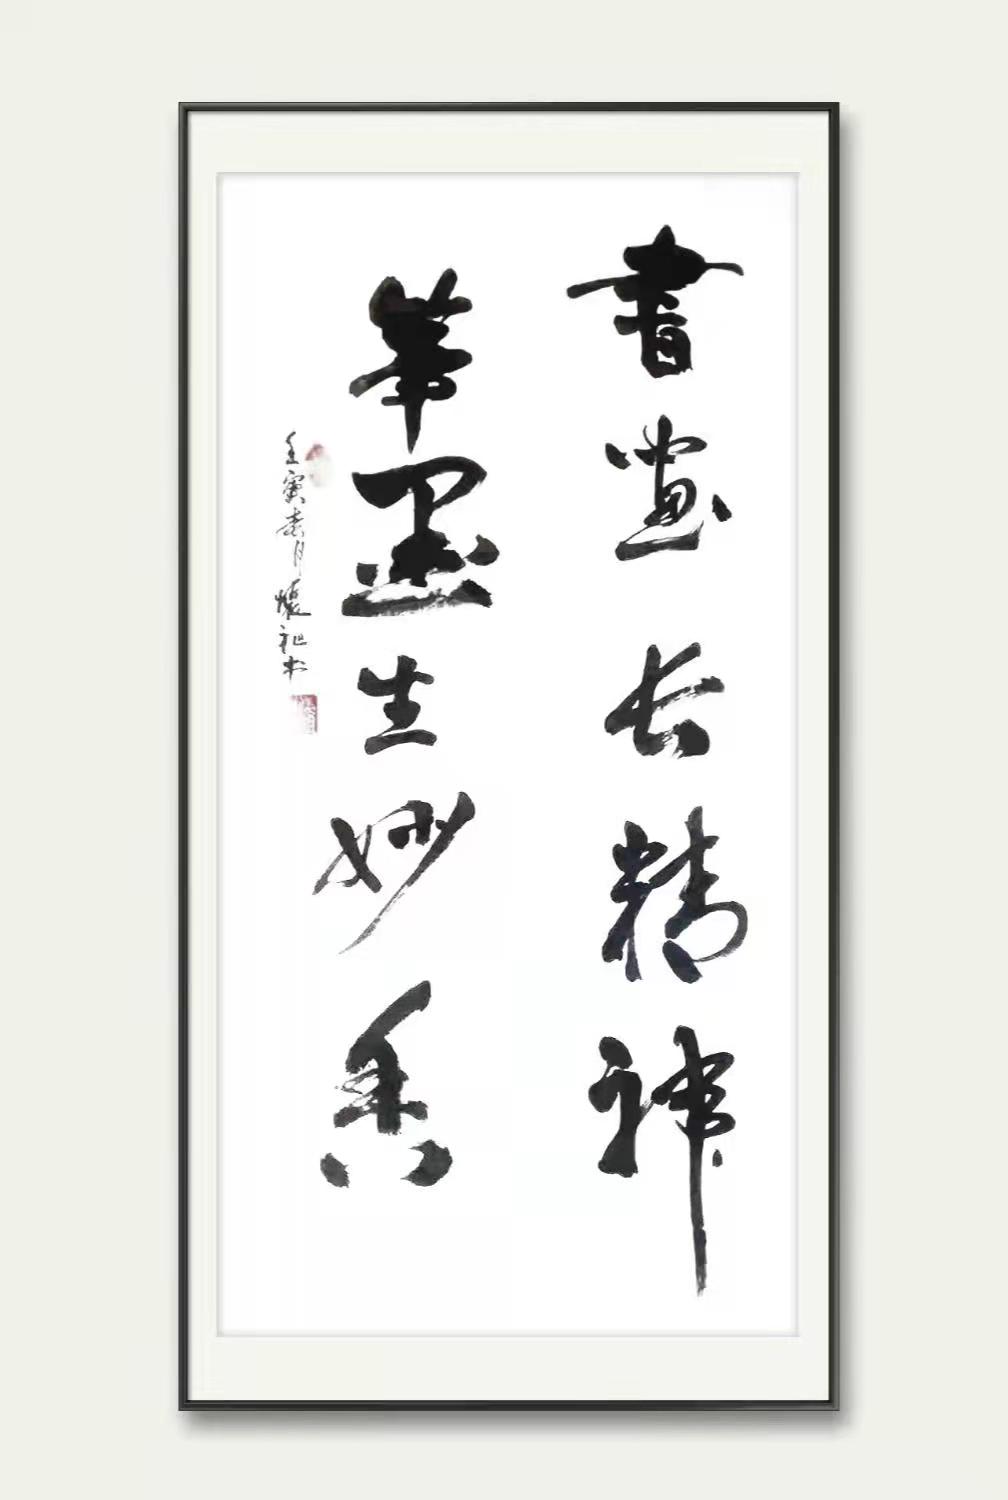 書畫长精神
筆墨生妙香
壬寅春月懷祉书